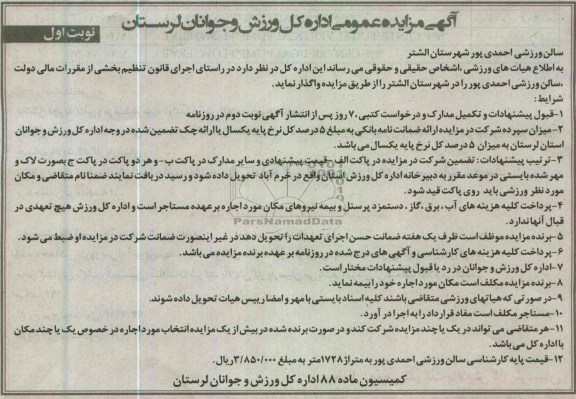 آگهی مزایده عمومی اداره کل ورزش و جوانان لرستان
نوبت اول
سالن ورزشی احمدی پور شهرستان الشتر
به اطلاع هیات های ورزشی ،اشخاص حقیقی و حقوقی می رساند این اداره کل در نظر دارد در راستای اجرای قانون تنظیم بخشی از مقررات مالی دولت
،سالن ورزشی احمدی پور را در شهرستان الشتر را از طریق مزایده واگذار نماید.
شرایط:
۱-قبول پیشنهادات و تکمیل مدارک و درخواست کتبی ،۷ روز پس از انتشار آگهی نوبت دوم در روزنامه
۲-میزان سپرده شرکت در مزایده ارائه ضمانت نامه بانکی به مبلغ ۵ درصد کل نرخ پایه یکسال یا ارائه چک تضمین شده در وجه اداره کل ورزش و جوانان
استان لرستان به میزان ۵ درصد کل نرخ پایه یکسال می باشد.
۳-ترتیب پیشنهادات : تضمین شرکت در مزایده در پاکت الف -قیمت پیشنهادی و سایر مدارک در پاکت ب- و هر دو پاکت در پاکت ج بصورت لاک و
مهر شده بایستی در موعد مقرر به دبیرخانه اداره کل ورزش استان واقع در خرم آباد تحویل داده شود و رسید دریافت نمایند ضمنا نام متقاضی و مکان
مورد نظر ورزشی باید روی پاکت قید شود.
۴-پرداخت کلیه هزینه های آب ، برق ،گاز ، دستمزد پرسنل و بیمه نیروهای مکان مورد اجاره بر عهده مستاجر است و اداره کل ورزش هیچ تعهدی در
قبال آنها ندارد.
۵-برنده مزایده موظف است ظرف یک هفته ضمانت حسن اجرای تعهدات را تحویل دهد در غیر اینصورت ضمانت شرکت در مزایده او ضبط می شود.
۶-پرداخت کلیه هزینه های کارشناسی و آگهی های درج شده در روزنامه بر عهده برنده مزایده می باشد.
۷-اداره کل ورزش و جوانان در رد یا قبول پیشنهادات مختار است.
۸-برنده مزایده مکلف است مکان مورد اجاره خود را بیمه نماید.
۹-در صورتی که هیاتهای ورزشی متقاضی باشند کلیه اسناد بایستی با مهر و امضا رییس هیات تحویل داده شوند.
۱۰-مستاجر مکلف است مفاد قرارداد را به اجرا در آورد.
۱۱-هر متقاضی می تواند در یک یا چند مزایده شرکت کند و در صورت برنده شده در بیش از یک مزایده انتخاب مورد اجاره در خصوص یک یا چند مکان
با اداره کل می باشد.
۱۲-قیمت پایه کارشناسی سالن ورزشی احمدی پور به متراژ ۱۷۲۸متر به مبلغ ۳/۸۵۰/۰۰۰ریال.
کمیسیون ماده ۸۸ اداره کل ورزش و جوانان لرستان
ParsNamadData